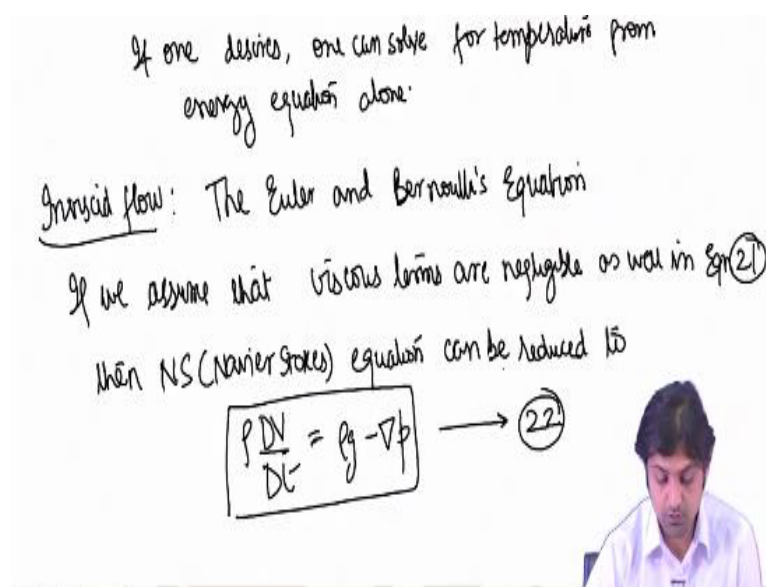 If one desires, one can solve for temperature from
energy equation alone.
Inviscid flow: The Euler and Bernoulli's Equation
If we assume that viscous terms are negligible as well in Eqn 21
then NS (Navier Stokes) equation can be reduced to
ρ DV/Dt = ρg - ∇p → 22